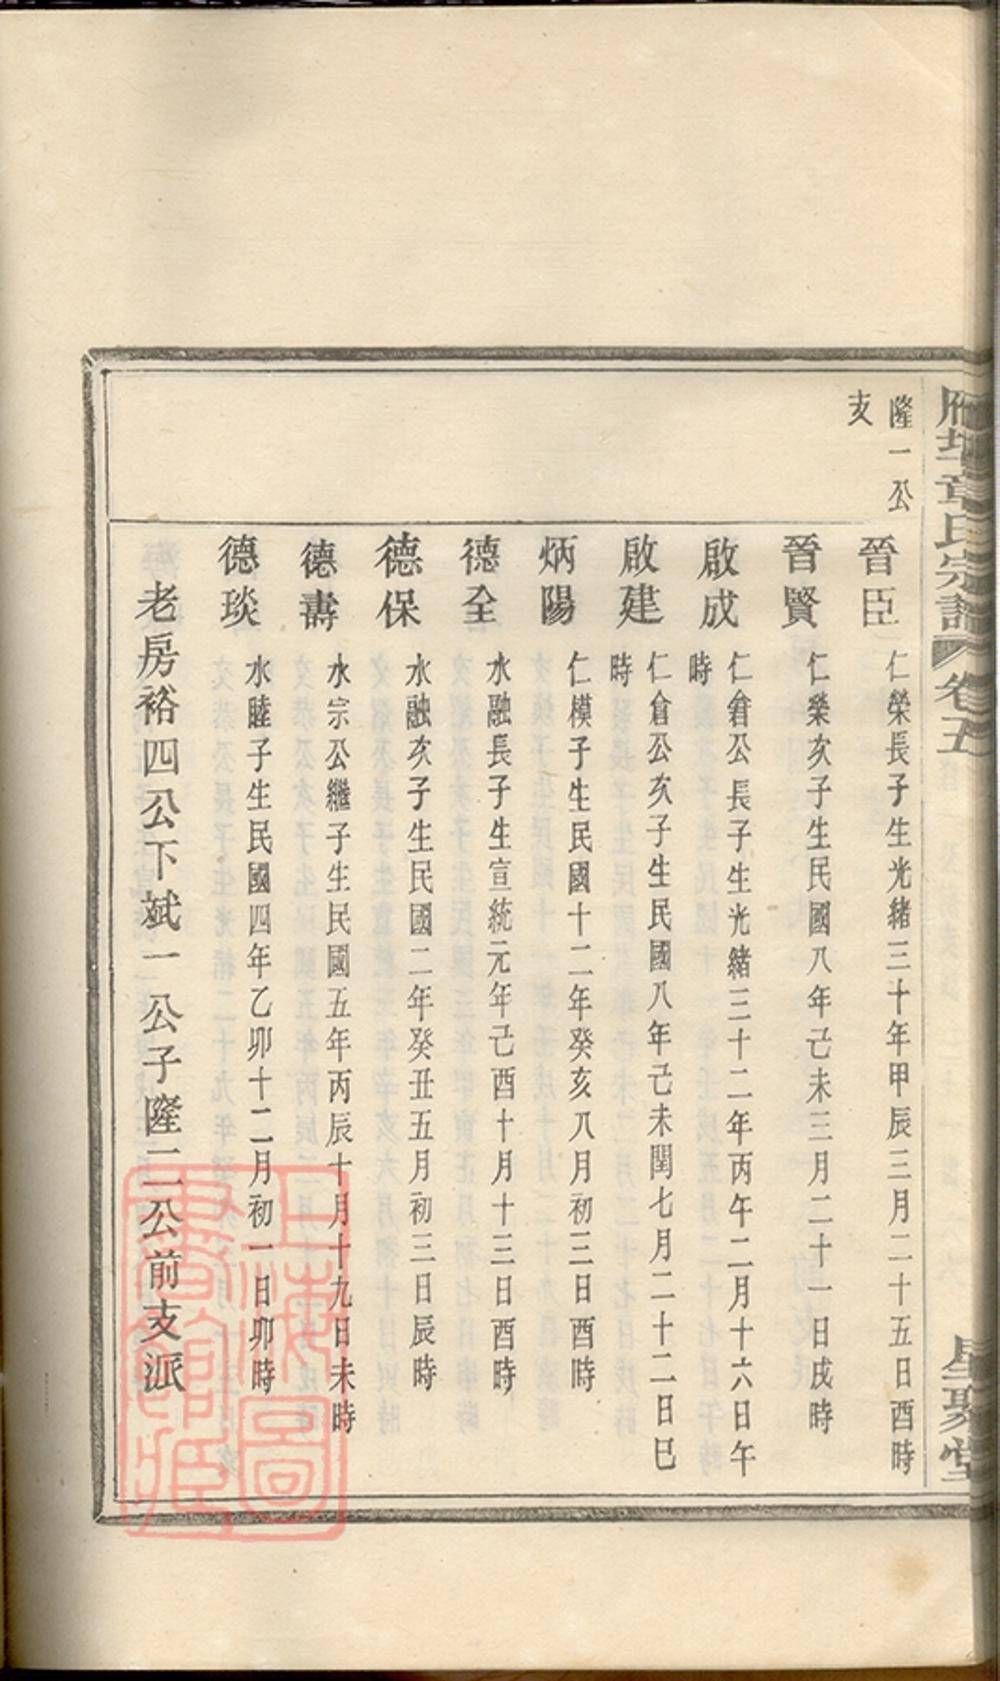 雁塔章氏宗譜 卷五 星聚堂
隆一公
支
晉臣 仁榮長子生光緒三十年甲辰三月二十五日酉時
晉賢 仁榮次子生民國八年己未三月二十一日戌時
啟成 仁倉公長子生光緒三十二年丙午二月十六日午
時
啟建 仁倉公次子生民國八年己未閏七月二十二日巳
時
炳陽 仁模子生民國十二年癸亥八月初三日酉時
德全 水融長子生宣統元年己酉十月十三日酉時
德保 水融次子生民國二年癸丑五月初三日辰時
德壽 水宗公繼子生民國五年丙辰十月十九日未時
德琰 水睦子生民國四年乙卯十二月初一日卯時
老房裕四公下斌一公子隆二公前支派
上海圖書館藏